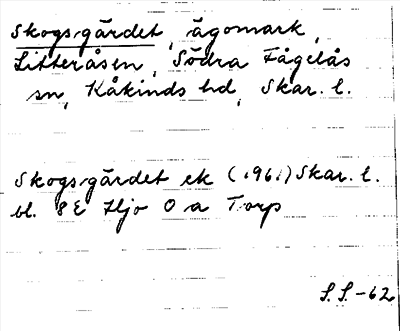 Skogsgärdet, ägomark,
Litteråsen, Södra Fågelås
sn, Kåkinds hd, Skar. l.
Skogsgärdet ek (1961) Skar. l.
bl. 8E Hjo 0 a Torp
S.S.-62